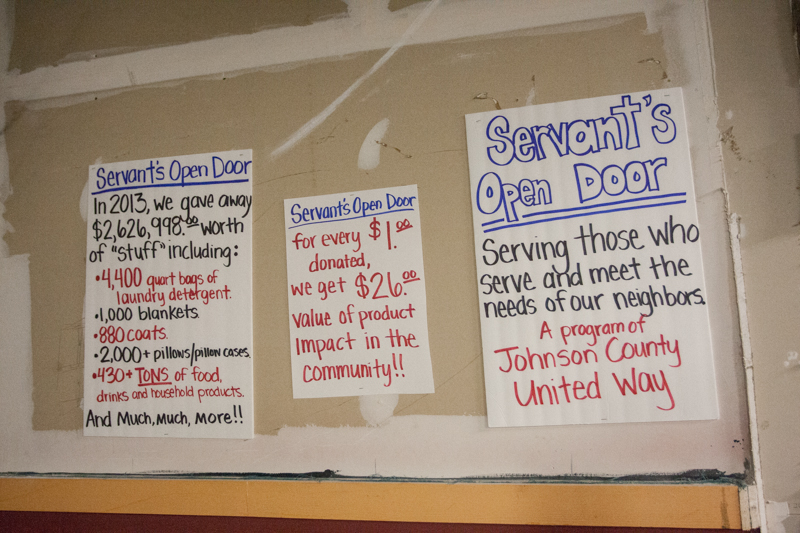 Servant's Open Door
In 2013, we gave away
$2,626,998.00 worth
of "stuff" including:
•4,400 quart bags of
laundry detergent.
•1,000 blankets.
•880 coats.
•2,000+ pillows/pillow cases.
•430+ TONS of food,
drinks and household products.
And Much, much, more!!
Servant's Open Door
for every $1.00
donated,
we get $26.00
value of product
impact in the
community!!
Servant's
Open Door
Serving those who
serve and meet the
needs of our neighbors.
A program of
Johnson County
United Way